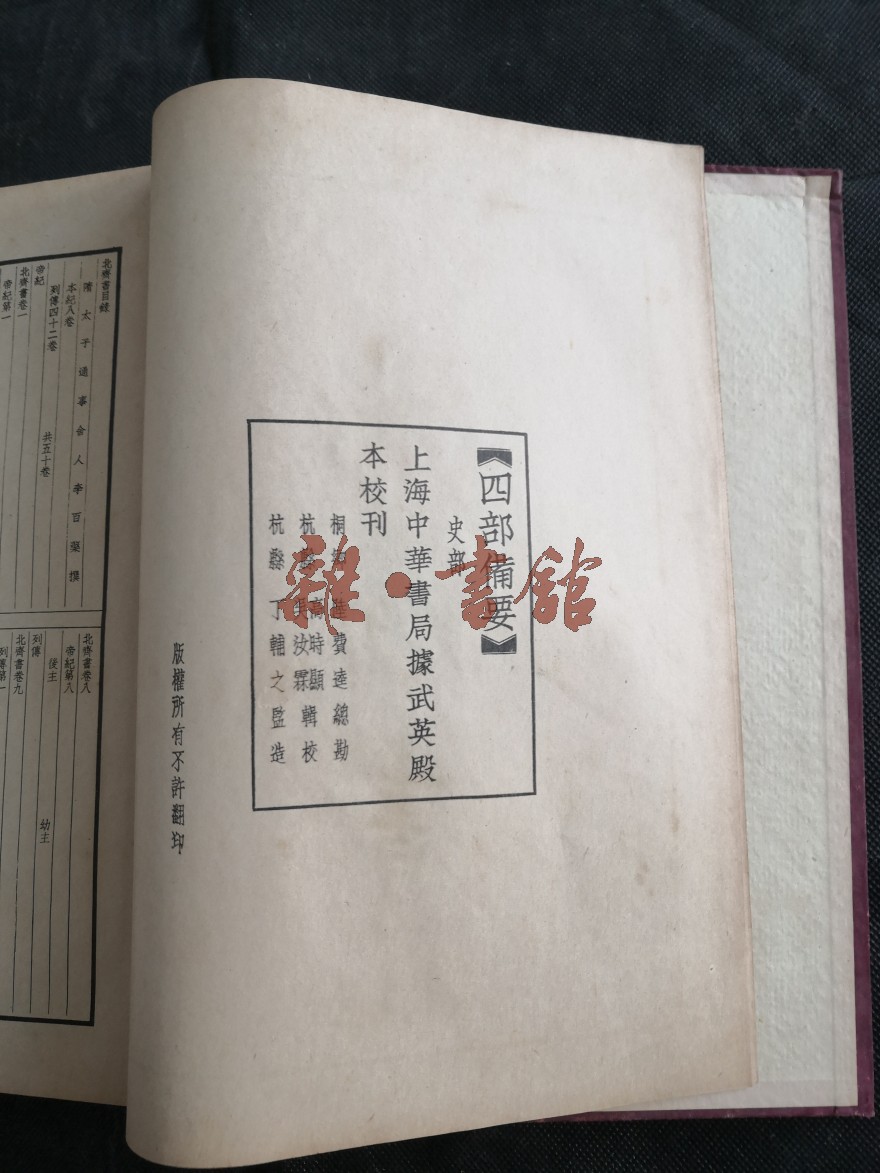 【四部備要】
史部
上海中華書局據武英殿
本校刊
桐鄉 陸費逵總勘
杭縣 高時顯 吳汝霖 輯校
杭縣 丁輔之監造
版權所有不許翻印
雜·書館
北齊書目錄
隋太子通事舍人李百藥撰
本紀八卷
列傳四十二卷 共五十卷
帝紀
北齊書卷一
帝紀第一
北齊書卷八
帝紀第八
後主 幼主
列傳
北齊書卷九
列傳第一